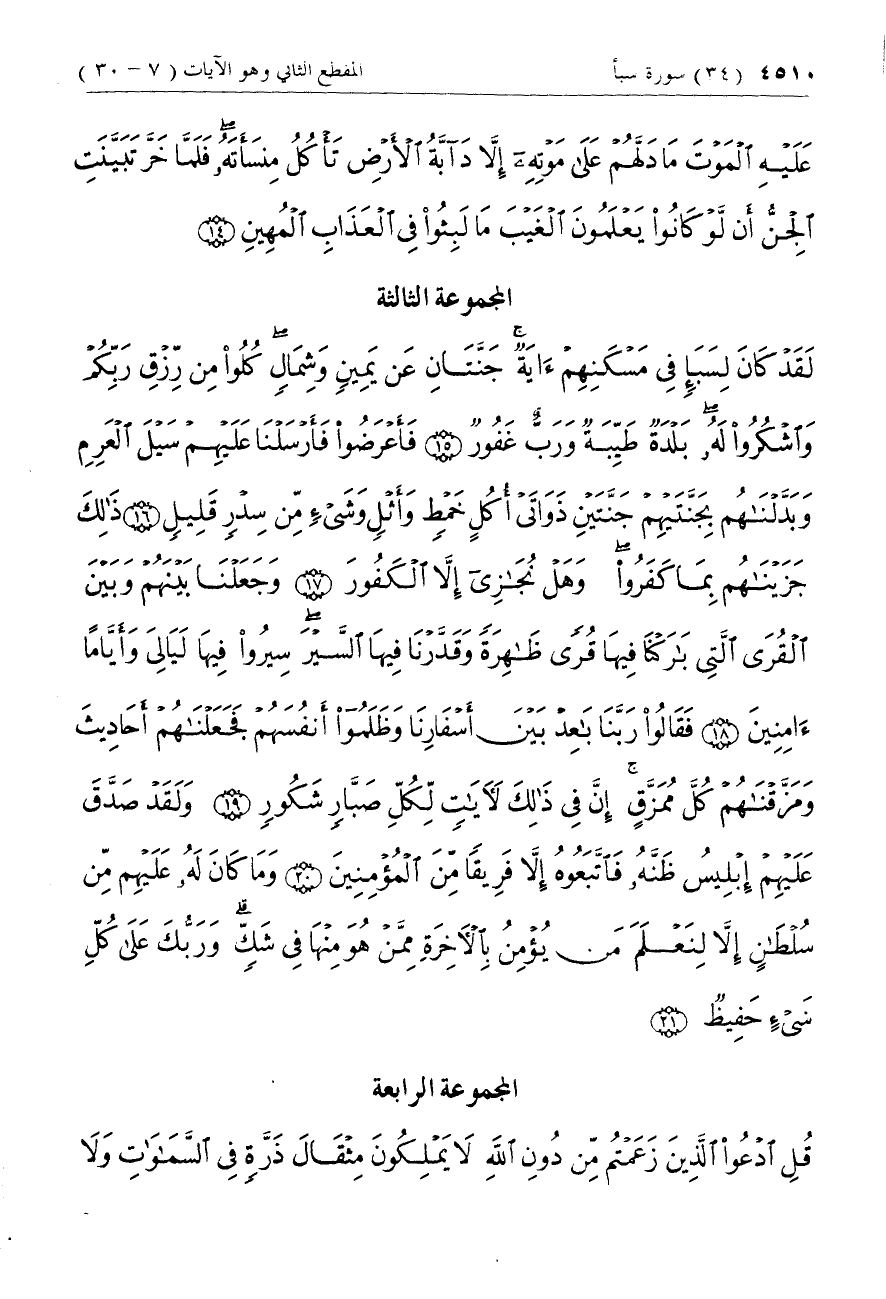 ٤٥١٠ (٣٤) سورة سبأ المقطع الثاني وهو الآيات (٧ - ٣٠)
عَلَيْهِ ٱلْمَوْتَ مَا دَلَّهُمْ عَلَىٰ مَوْتِهِۦٓ إِلَّا دَآبَّةُ ٱلْأَرْضِ تَأْكُلُ مِنسَأَتَهُۥۖ فَلَمَّا خَرَّ تَبَيَّنَتِ
ٱلْجِنُّ أَن لَّوْ كَانُوا۟ يَعْلَمُونَ ٱلْغَيْبَ مَا لَبِثُوا۟ فِى ٱلْعَذَابِ ٱلْمُهِينِ ١٤
المجموعة الثالثة
لَقَدْ كَانَ لِسَبَإٍ فِى مَسْكَنِهِمْ ءَايَةٌۚ جَنَّتَانِ عَن يَمِينٍ وَشِمَالٍۖ كُلُوا۟ مِن رِّزْقِ رَبِّكُمْ
وَٱشْكُرُوا۟ لَهُۥۖ بَلْدَةٌ طَيِّبَةٌ وَرَبٌّ غَفُورٌ ١٥ فَأَعْرَضُوا۟ فَأَرْسَلْنَا عَلَيْهِمْ سَيْلَ ٱلْعَرِمِ
وَبَدَّلْنَٰهُم بِجَنَّتَيْهِمْ جَنَّتَيْنِ ذَوَاتَىْ أُكُلٍ خَمْطٍ وَأَثْلٍ وَشَىْءٍ مِّن سِدْرٍ قَلِيلٍ ١٦ ذَٰلِكَ
جَزَيْنَٰهُم بِمَا كَفَرُوا۟ۖ وَهَلْ نُجَٰزِىٓ إِلَّا ٱلْكَفُورَ ١٧ وَجَعَلْنَا بَيْنَهُمْ وَبَيْنَ
ٱلْقُرَى ٱلَّتِى بَٰرَكْنَا فِيهَا قُرًى ظَٰهِرَةً وَقَدَّرْنَا فِيهَا ٱلسَّيْرَۖ سِيرُوا۟ فِيهَا لَيَالِىَ وَأَيَّامًا
ءَامِنِينَ ١٨ فَقَالُوا۟ رَبَّنَا بَٰعِدْ بَيْنَ أَسْفَارِنَا وَظَلَمُوٓا۟ أَنفُسَهُمْ فَجَعَلْنَٰهُمْ أَحَادِيثَ
وَمَزَّقْنَٰهُمْ كُلَّ مُمَزَّقٍۚ إِنَّ فِى ذَٰلِكَ لَءَايَٰتٍ لِّكُلِّ صَبَّارٍ شَكُورٍ ١٩ وَلَقَدْ صَدَّقَ
عَلَيْهِمْ إِبْلِيسُ ظَنَّهُۥ فَٱتَّبَعُوهُ إِلَّا فَرِيقًا مِّنَ ٱلْمُؤْمِنِينَ ٢٠ وَمَا كَانَ لَهُۥ عَلَيْهِم مِّن
سُلْطَٰنٍ إِلَّا لِنَعْلَمَ مَن يُؤْمِنُ بِٱلْءَاخِرَةِ مِمَّنْ هُوَ مِنْهَا فِى شَكٍّۗ وَرَبُّكَ عَلَىٰ كُلِّ
شَىْءٍ حَفِيظٌ ٢١
المجموعة الرابعة
قُلِ ٱدْعُوا۟ ٱلَّذِينَ زَعَمْتُم مِّن دُونِ ٱللَّهِ لَا يَمْلِكُونَ مِثْقَالَ ذَرَّةٍ فِى ٱلسَّمَٰوَٰتِ وَلَا